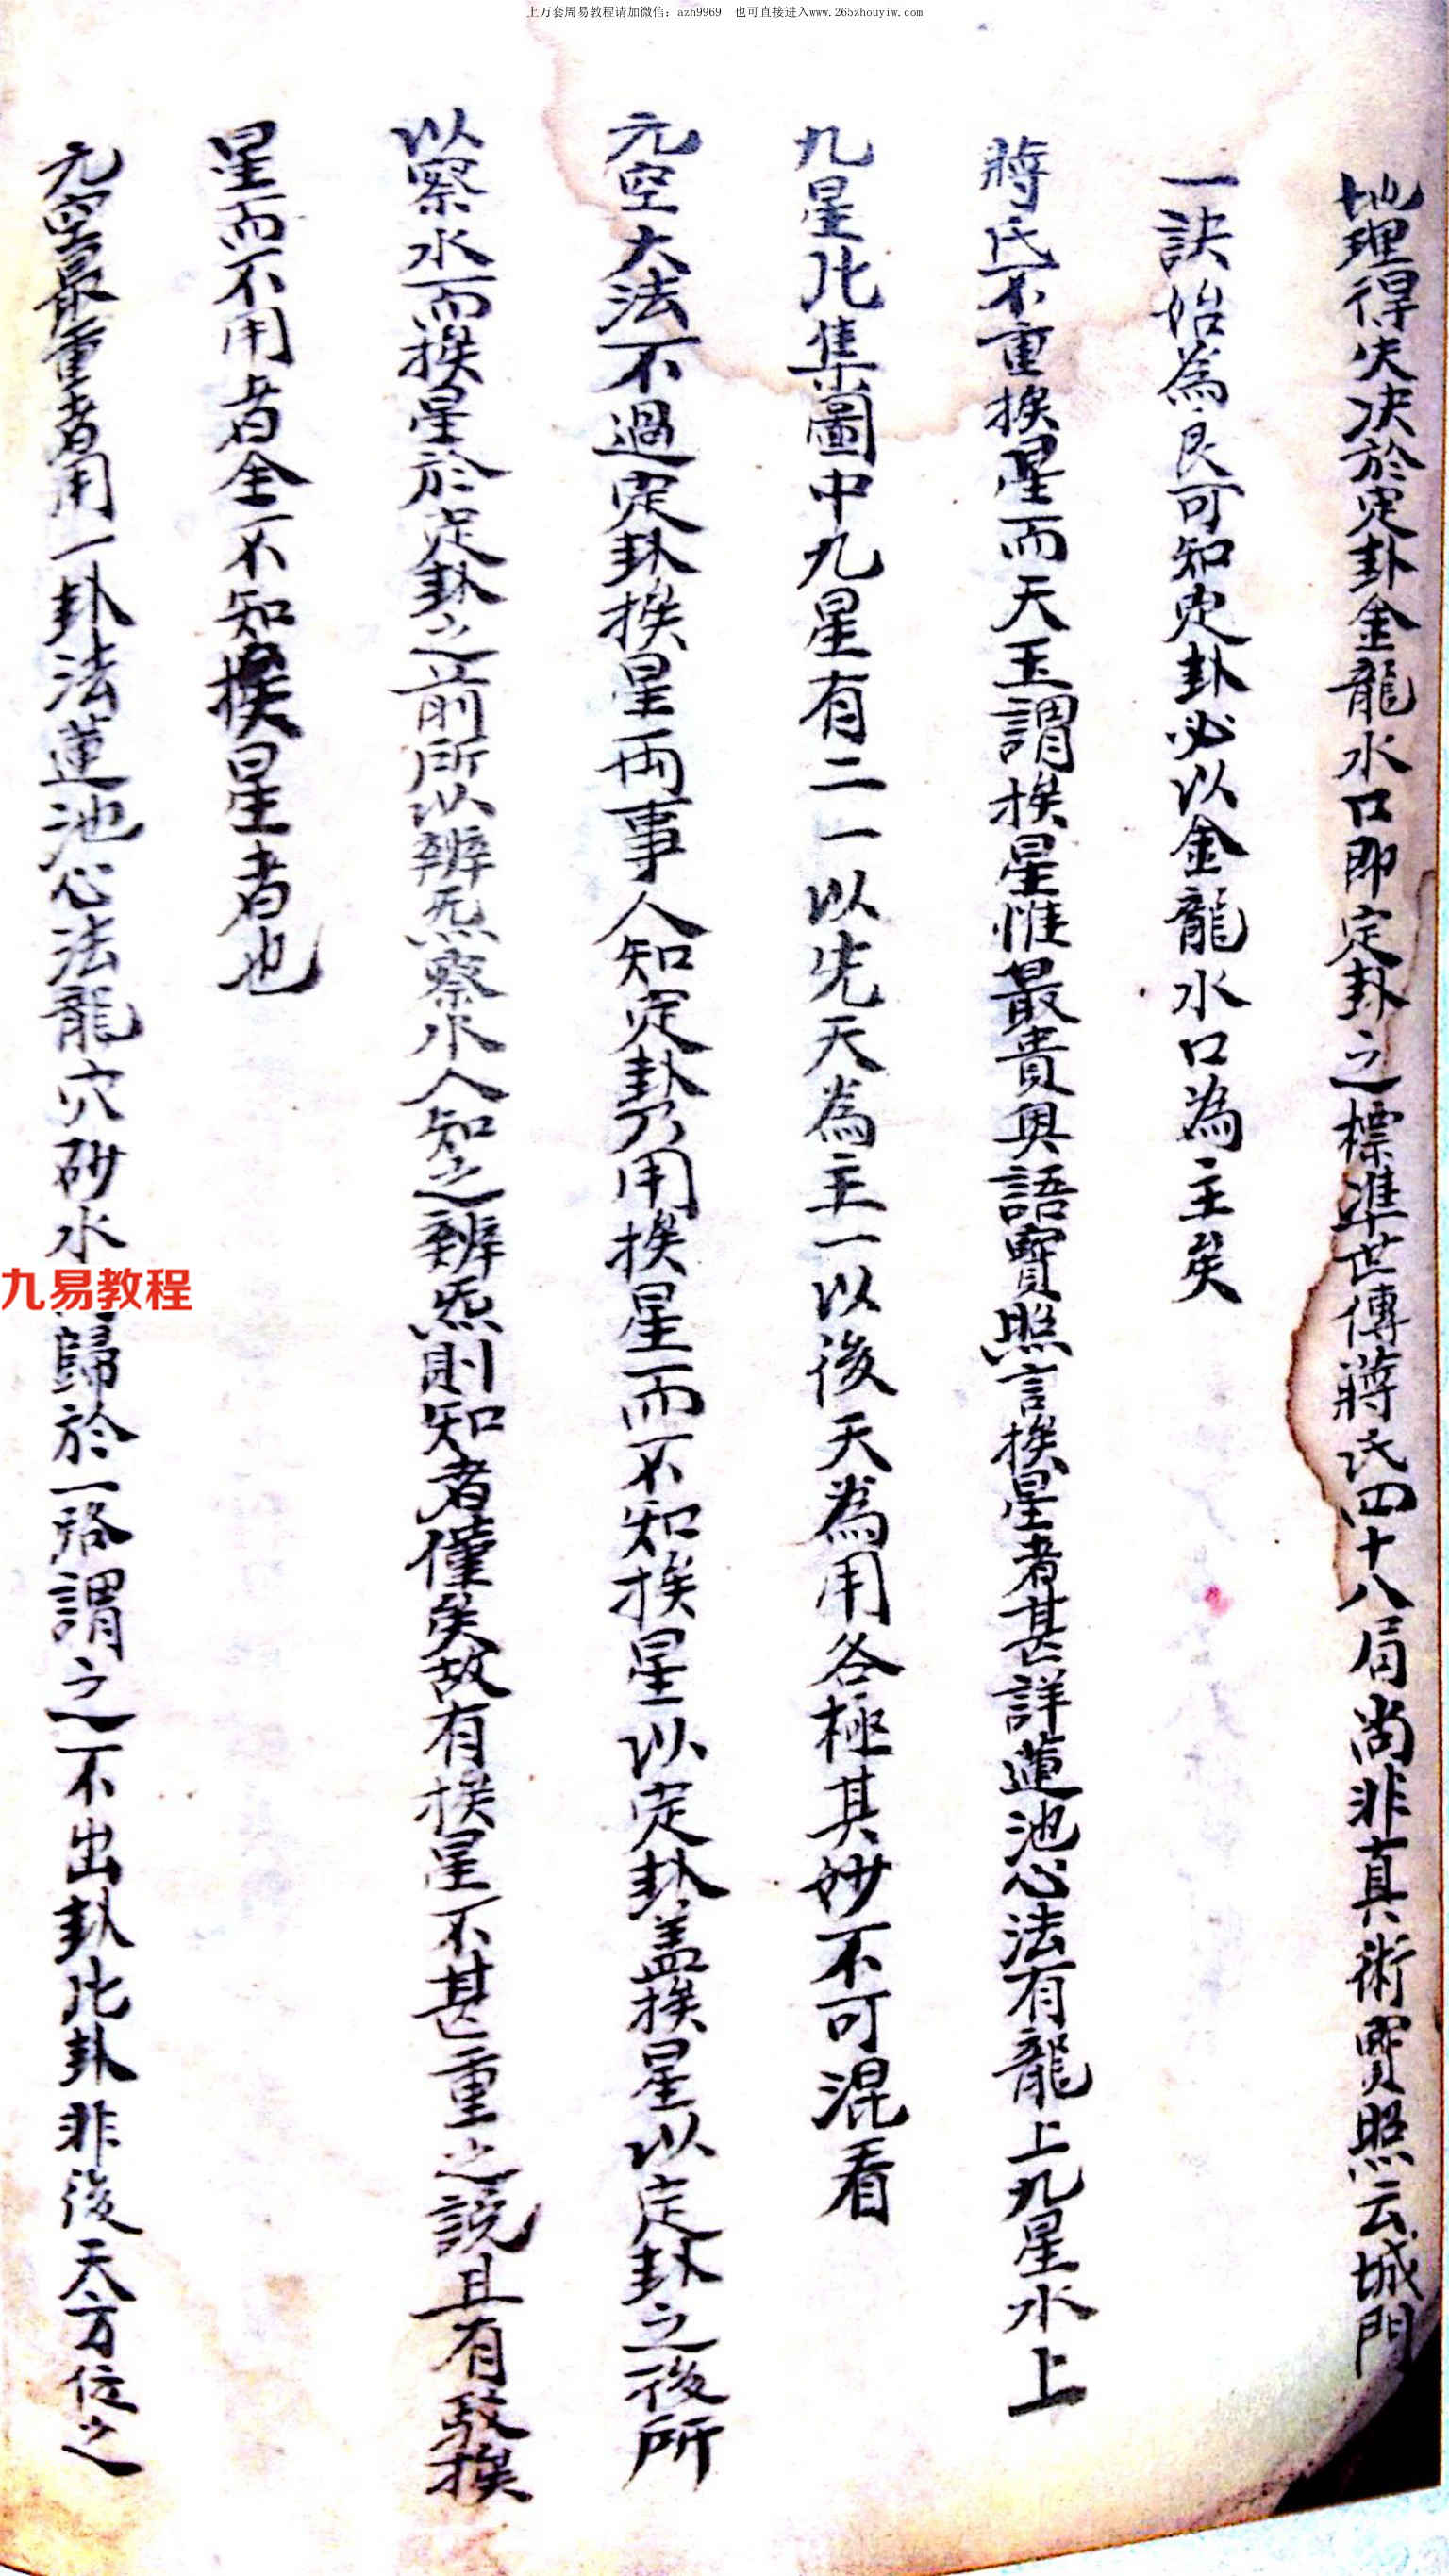 上万套周易教程请加微信：azh9969　也可直接进入www.265zhouyiw.com
地理得失决於定卦金龍水口即定卦之標準世傳蔣氏四十八局尚非真術寶照云城門
一訣始為良可知定卦必以金龍水口為主矣
蔣氏不重挨星而天玉謂挨星惟最貴奥語寶照言挨星者甚詳蓮池心法有龍上九星水上
九星此集圖中九星有二一以先天為主一以後天為用各極其妙不可混看
元空大法不過定卦挨星兩事人知定卦乃用挨星而不知挨星以定卦盖挨星以定卦之後所
以察水而挨星於定卦之前所以辦炁察水人知之辨炁則知者僅矣故有挨星不甚重之説且有發挨
星而不用者全不知挨星者也
元空最重者用一卦法蓮池心法龍穴砂水歸於一路謂之不出卦此卦非後天方位之
九易教程